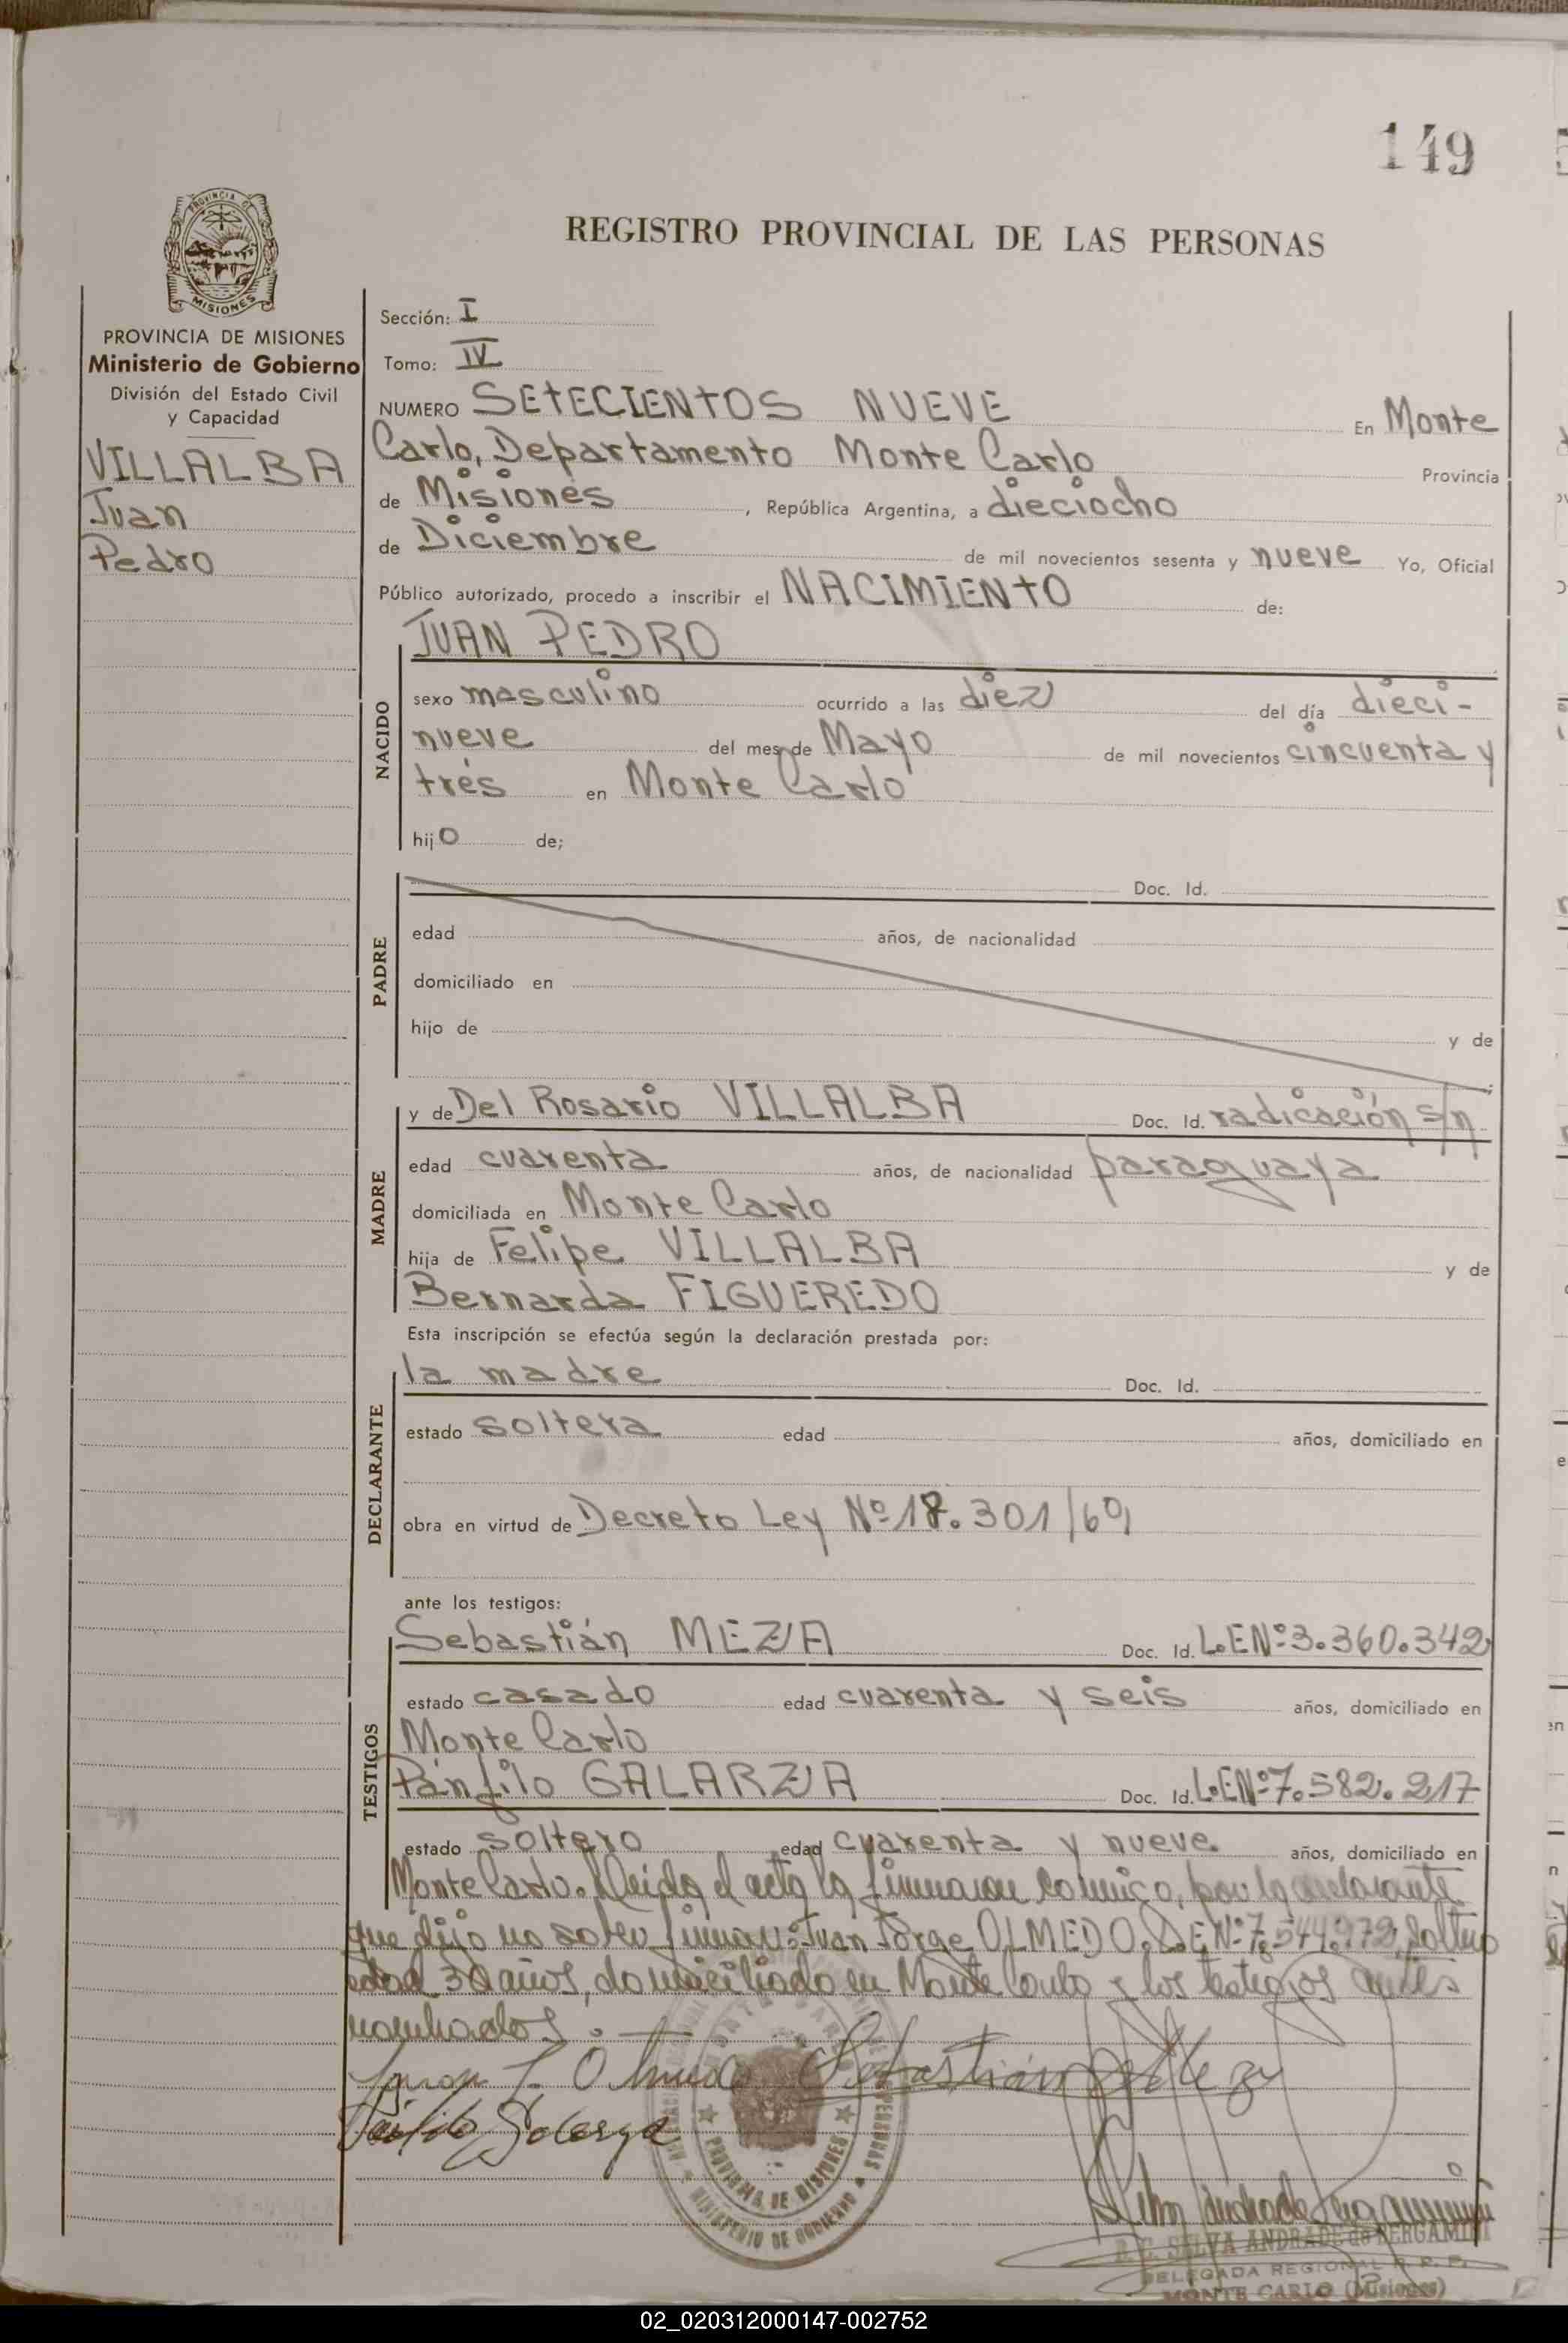 149
PROVINCIA DE
MISIONES
REGISTRO PROVINCIAL DE LAS PERSONAS
PROVINCIA DE MISIONES
Ministerio de Gobierno
División del Estado Civil
y Capacidad
VILLALBA
Juan
Pedro
Sección: I
Tomo: IV
NUMERO SETECIENTOS NUEVE En Monte
Carlo, Departamento Monte Carlo Provincia
de Misiones, República Argentina, a dieciocho
de Diciembre de mil novecientos sesenta y nueve Yo, Oficial
Público autorizado, procedo a inscribir el NACIMIENTO de:
NACIDO
JUAN PEDRO
sexo masculino ocurrido a las diez del día dieci-
nueve del mes de Mayo de mil novecientos cincuenta y
tres en Monte Carlo
hijo de;
PADRE
Doc. Id.
edad años, de nacionalidad
domiciliado en
hijo de y de
;
MADRE
y de Del Rosario VILLALBA Doc. Id. radicación s/n
edad cuarenta años, de nacionalidad paraguaya
domiciliada en Monte Carlo
hija de Felipe VILLALBA y de
Bernarda FIGUEREDO
Esta inscripción se efectúa según la declaración prestada por:
DECLARANTE
la madre Doc. Id.
estado soltera edad años, domiciliado en
obra en virtud de Decreto Ley Nº 18.301/69
ante los testigos:
TESTIGOS
Sebastián MEZA Doc. Id. L.E.Nº 3.360.342
estado casado edad cuarenta y seis años, domiciliado en
Monte Carlo
Pánfilo GALARZA Doc. Id. L.E.Nº 7.582.217
estado soltero edad cuarenta y nueve años, domiciliado en
Monte Carlo. Leida el acta la firmaron conmigo, por la declarante
que dijo no saber firmar: Juan Jorge OLMEDO, L.E.Nº 7.544.972, soltero
edad 30 años, domiciliado en Monte Carlo y los testigos antes
nombrados.
Juan J. Olmedo Sebastián Meza
Pánfilo Galarza
PROVINCIA DE MISIONES
MINISTERIO DE GOBIERNO
R. C. SELVA ANDRADE de BERGAMINI
DELEGADA REGIONAL R. P. P.
MONTE CARLO (Misiones)
02_020312000147-002752